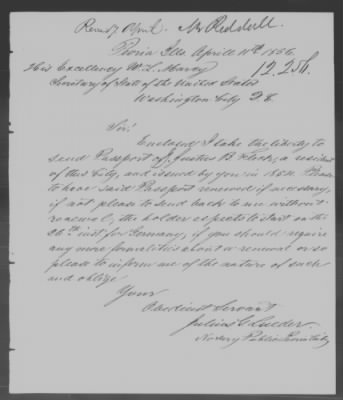 Mr Reddall.
Peoria Ills. Aprill 11th 1856
His Excellency W. L. Marcy 12.256.
Secretary of State of the United States
Washington City D.C.
Sir!
Enclosed I take the liberty to
send Passport of Justus B. a resident
of this City, and issued by you in 1854. Please
to have said Passport renewed if necessary,
if not, please to send back to me without
renewal, the holder expects to start on the
26th inst for Germany, if you should require
any more formalities about a renewal or so
please to inform me of the nature of such
and oblige
Your
Obedient Servant
Julius C. Lueder.
Notary Public